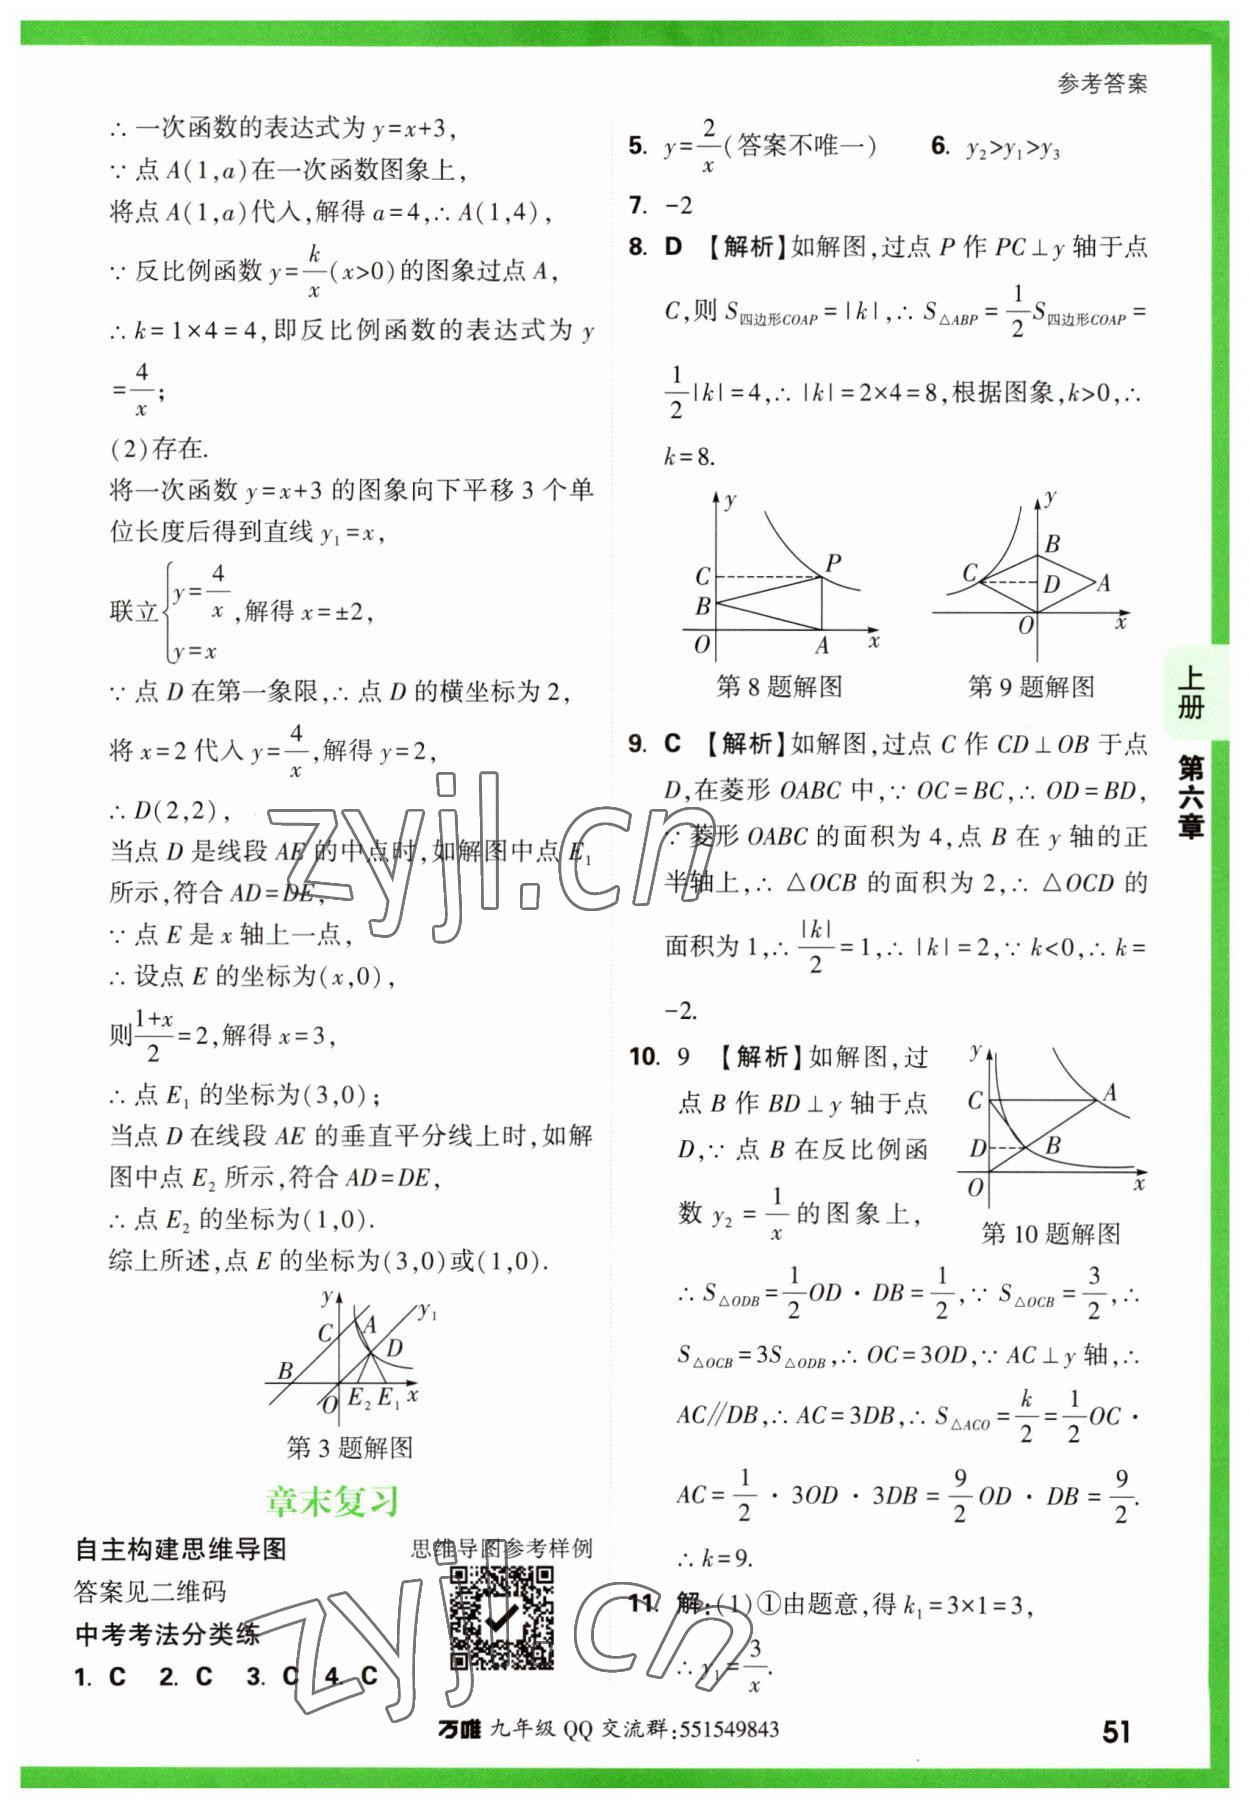 参考答案
∴ 一次函数的表达式为 y=x+3,
∵ 点 A(1,a)在一次函数图象上,
将点 A(1,a)代入,解得 a=4,∴ A(1,4),
∵ 反比例函数 y=k/x(x>0)的图象过点 A,
∴ k=1×4=4,即反比例函数的表达式为 y
=4/x;
(2)存在.
将一次函数 y=x+3 的图象向下平移 3 个单
位长度后得到直线 y₁=x,
联立{y=4/x, y=x ,解得 x=±2,
∵ 点 D 在第一象限,∴ 点 D 的横坐标为 2,
将 x=2 代入 y=4/x,解得 y=2,
∴ D(2,2),
当点 D 是线段 AE 的中点时,如解图中点 E₁
所示,符合 AD=DE,
∵ 点 E 是 x 轴上一点,
∴ 设点 E 的坐标为(x,0),
则(1+x)/2=2,解得 x=3,
∴ 点 E₁ 的坐标为(3,0);
当点 D 在线段 AE 的垂直平分线上时,如解
图中点 E₂ 所示,符合 AD=DE,
∴ 点 E₂ 的坐标为(1,0).
综上所述,点 E 的坐标为(3,0)或(1,0).
y y₁ C A D B O E₂ E₁ x
第 3 题解图
章末复习
自主构建思维导图 思维导图参考样例
答案见二维码
中考考法分类练
1. C 2. C 3. C 4. C
5. y=2/x(答案不唯一) 6. y₂>y₁>y₃
7. -2
8. D 【解析】如解图,过点 P 作 PC⊥y 轴于点
C,则 S四边形COAP=|k|,∴ S△ABP=1/2S四边形COAP=
1/2|k|=4,∴ |k|=2×4=8,根据图象,k>0,∴
k=8.
y C P B O A x
第 8 题解图
y B C D A O x
第 9 题解图
9. C 【解析】如解图,过点 C 作 CD⊥OB 于点
D,在菱形 OABC 中,∵ OC=BC,∴ OD=BD,
∵ 菱形 OABC 的面积为 4,点 B 在 y 轴的正
半轴上,∴ △OCB 的面积为 2,∴ △OCD 的
面积为 1,∴ |k|/2=1,∴ |k|=2,∵ k<0,∴ k=
-2.
10. 9 【解析】如解图,过
点 B 作 BD⊥y 轴于点
D,∵ 点 B 在反比例函
数 y₂=1/x 的图象上,
y C A D B O x
第 10 题解图
∴ S△ODB=1/2OD·DB=1/2,∵ S△OCB=3/2,∴
S△OCB=3S△ODB,∴ OC=3OD,∵ AC⊥y 轴,∴
AC∥DB,∴ AC=3DB,∴ S△ACO=k/2=1/2OC·
AC=1/2·3OD·3DB=9/2OD·DB=9/2.
∴ k=9.
11. 解:(1)①由题意,得 k₁=3×1=3,
∴ y₁=3/x.
上册 第六章
zyjl.cn
zyjl.cn
万唯 九年级 QQ 交流群:551549843
51